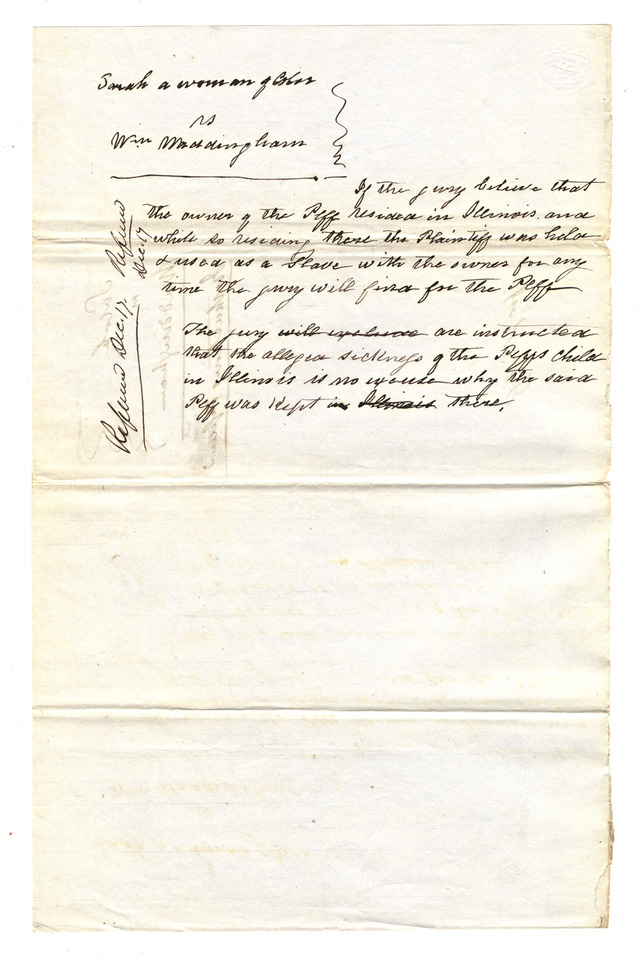 Sarah a woman of Color
vs
Wm Waddingham
If the jury believe that
the owner of the Plff resided in Illinois and
while so residing there the Plaintiff was held
& used as a Slave with the owner for any
time the jury will find for the Plff
The jury will exclude are instructed
that the alleged sickness of the Plffs child
in Illinois is no excuse why the said
Plff was kept in Illinois there.
Refused
Dec. 17
Refused Dec. 17.